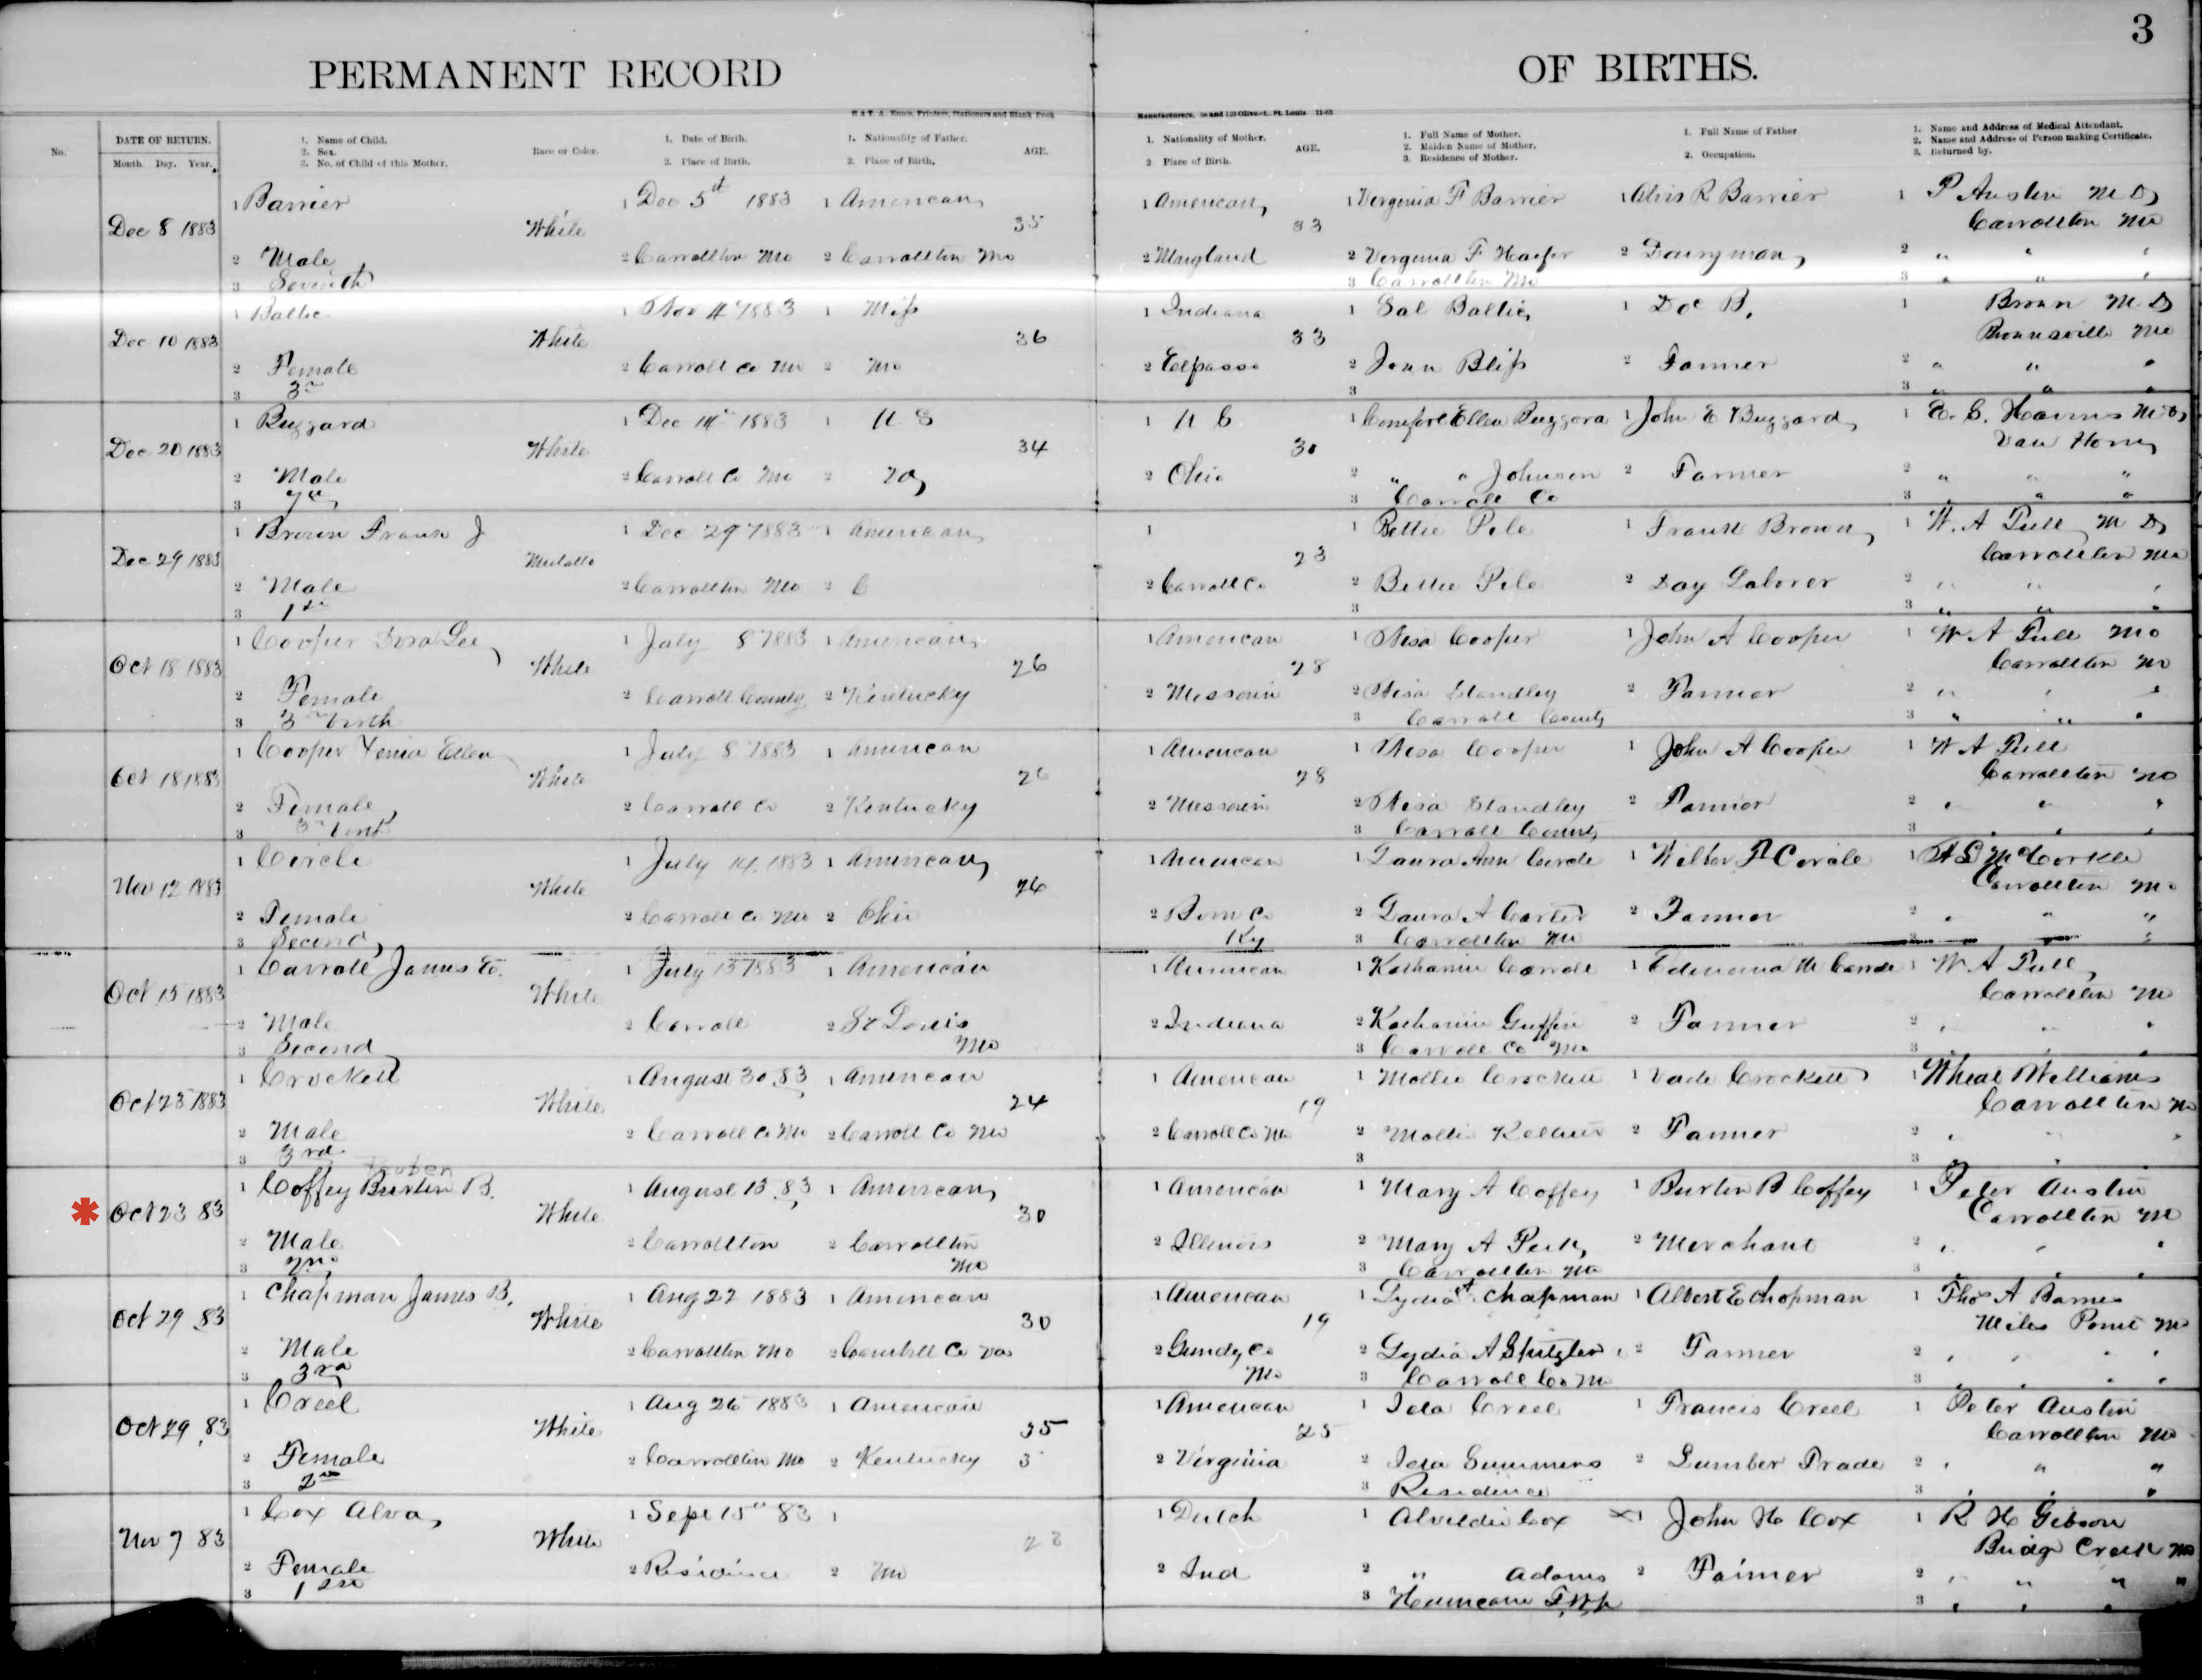 3
PERMANENT RECORD OF BIRTHS.
No.
DATE OF RETURN.
Month. Day. Year.
1. Name of Child.
2. Sex.
3. No. of Child of this Mother.
Race or Color.
1. Date of Birth.
2. Place of Birth.
1. Nationality of Father.
2. Place of Birth.
AGE.
1. Nationality of Mother.
2 Place of Birth.
AGE.
1. Full Name of Mother.
2. Maiden Name of Mother.
3. Residence of Mother.
1. Full Name of Father
2. Occupation.
1. Name and Address of Medical Attendant.
2. Name and Address of Person making Certificate.
3. Returned by.
1 Barrier 1 Dec 5th 1883 1 American 1 American 1 Virginia F Barrier 1 R Barrier 1 P Austin M D
Dec 8 1883 White 35 33 Carrollton Mo
2 Male 2 Carrollton Mo 2 Carrollton Mo 2 Maryland 2 Virginia F 2 Dairyman 2 " " "
3 Seventh 3 Carrollton Mo 3 " " "
1 Baltic 1 Nov 1883 1 Miss 1 Indiana 1 Sal Baltic 1 Doc B. 1 Brown M D
Dec 10 1883 White 36 33 Brownsville Mo
2 Female 2 Carroll Co Mo 2 Mo 2 Elpasso 2 Bliss 2 Farmer 2 " " "
3 3rd 3 3 " " "
1 Buggard 1 Dec 1883 1 U S 1 U S 1 Ellen 1 John E Buggard 1 E. C. M D
Dec 20 1883 White 34 30 Van Horn
2 Male 2 Carroll Co Mo 2 2 Ohio 2 " " Johnson 2 Farmer 2 " " "
3 3 Carroll Co 3 " " "
1 Brown Frank J 1 Dec 29 1883 1 American 1 1 Bettie Pile 1 Frank Brown 1 W. A Tull M D
Dec 29 1883 Mulatto 23 Carrollton Mo
2 Male 2 Carrollton Mo 2 C 2 Carroll Co 2 Bettie Pile 2 Day Laborer 2 " " "
3 1st 3 3 " " "
1 Cooper Lee 1 July 8 1883 1 American 1 American 1 Cooper 1 John A Cooper 1 W A Tull Mo
Oct 18 1883 White 26 28 Carrollton Mo
2 Female 2 Carroll County 2 Kentucky 2 Missouri 2 Standley 2 Farmer 2 " " "
3 3rd birth 3 Carroll County 3 " " "
1 Cooper Ellen 1 July 8 1883 1 American 1 American 1 Cooper 1 John A Cooper 1 W A Tull
Oct 18 1883 White 26 28 Carrollton Mo
2 Female 2 Carroll Co 2 Kentucky 2 Missouri 2 Standley 2 Farmer 2 " " "
3 3rd birth 3 Carroll County 3 " " "
1 Circle 1 July 1883 1 American 1 American 1 Laura Ann Circle 1 Circle 1 McCorkle
Nov 12 1883 White 26 Carrollton Mo
2 Female 2 Carroll Co Mo 2 Ohio 2 Co 2 Laura A Carter 2 Farmer 2 " " "
3 Second Ky 3 Carrollton Mo 3 " " "
1 Carroll James E. 1 July 13 1883 1 American 1 American 1 Katharine Carroll 1 M Carroll 1 W A Tull
Oct 15 1883 White Carrollton Mo
2 Male 2 Carroll 2 St Louis 2 Indiana 2 Katharine Griffin 2 Farmer 2 " " "
3 Second Mo 3 Carroll Co Mo 3 " " "
1 Crockett 1 August 30 83 1 American 1 American 1 Mollie Crockett 1 Crockett 1 Williams
Oct 25 1883 White 24 19 Carrollton Mo
2 Male 2 Carroll Co Mo 2 Carroll Co Mo 2 Carroll Co Mo 2 Mollie 2 Farmer 2 " " "
3 3rd 3 3 " " "
1 Coffey Burton B. 1 August 13 83 1 American 1 American 1 Mary A Coffey 1 Burton B Coffey 1 Peter Austin
* Oct 23 83 White 30 Carrollton Mo
2 Male 2 Carrollton 2 Carrollton 2 Illinois 2 Mary A 2 Merchant 2 " " "
3 2nd Mo 3 Carrollton Mo 3 " " "
1 Chapman James B. 1 Aug 22 1883 1 American 1 American 1 Lydia A Chapman 1 Albert E Chapman 1 Thos A Barnes
Oct 29 83 White 30 19 Miles Point Mo
2 Male 2 Carrollton Mo 2 Campbell Co Va 2 Grundy Co 2 Lydia A Spitzler 2 Farmer 2 " " "
3 3rd Mo 3 Carroll Co Mo 3 " " "
1 Creel 1 Aug 26 1883 1 American 1 American 1 Ida Creel 1 Francis Creel 1 Peter Austin
Oct 29 83 White 35 25 Carrollton Mo
2 Female 2 Carrollton Mo 2 Kentucky 3 2 Virginia 2 Ida Summers 2 Lumber Trade 2 " " "
3 2nd 3 Residence 3 " " "
1 Cox Alva 1 Sept 15th 83 1 1 Dutch 1 Cox 1 John H Cox 1 R H Gibson
Nov 7 83 White Bridge Creek Mo
2 Female 2 Residence 2 Mo 2 Ind 2 " Adams 2 Farmer 2 " " "
3 1st 3 Hurricane Twp 3 " " "